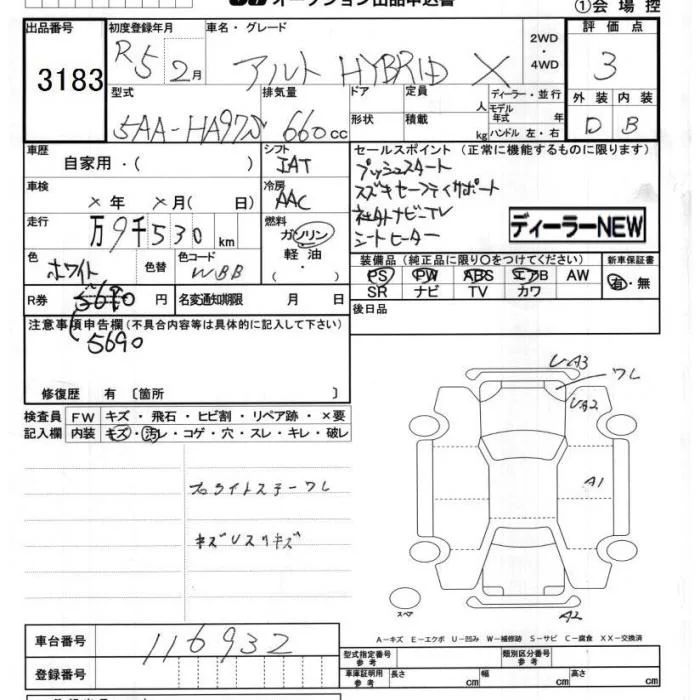 オークション出品申込書
①会場控
出品番号 初度登録年月 車名・グレード 2WD・4WD 評価点
3183 R5 2月 アルト HYBRID X 3
型式 排気量 ドア 定員 人 ディーラー・並行 外装 内装
5AA-HA97S 660cc 形状 積載 kg モデル年式 年 ハンドル 左・右 D B
車歴 シフト セールスポイント (正常に機能するものに限ります)
自家用・( ) IAT プッシュスタート
車検 冷房 スズキセーフティサポート
×年 ×月( 日) AAC 社外ナビーTV
走行 燃料 シートヒーター
万9千530km ガソリン ディーラーNEW
色 色替 色コード 軽油 装備品 (純正品に限り○をつけてください) 新車保証書
ホワイト WBB ・( ) PS PW ABS エアB AW 有・無
R券 5690 円 名変通知期限 月 日 SR ナビ TV カワ
後日品
注意事項申告欄 (不具合内容等は具体的に記入して下さい)
5690
修復歴 有 〔箇所 〕
検査員 FW キズ・飛石・ヒビ割・リペア跡・×要
記入欄 内装 キズ・汚レ・コゲ・穴・スレ・キレ・破レ
UA3
ワレ
UA2
A1
フロライトステーワレ
キズUスリキズ
スペア
A2
A-キズ E-エクボ U-凹み W-補修跡 S-サビ C-腐食 XX-交換済
車台番号 116932
型式指定番号 参考 類別区分番号 参考
登録番号
車庫証明用 参考 長さ cm 幅 cm 高さ cm